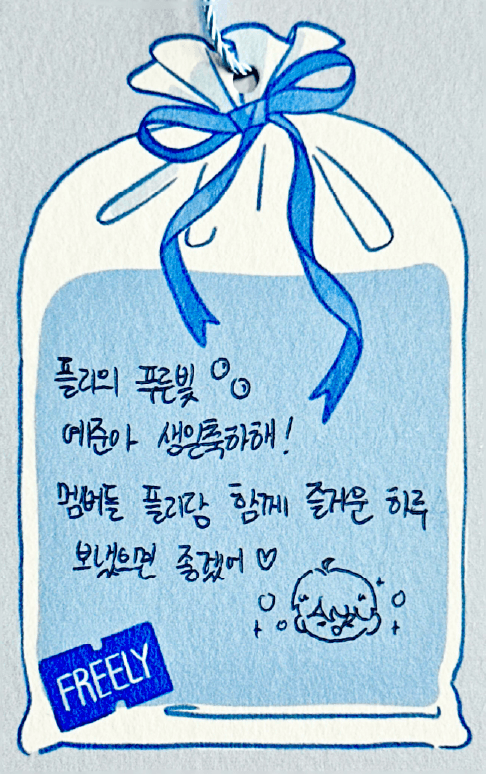 플리의 푸른빛
예준아 생일축하해!
멤버들 플리랑 함께 즐거운 하루
보냈으면 좋겠어 ♡
FREELY